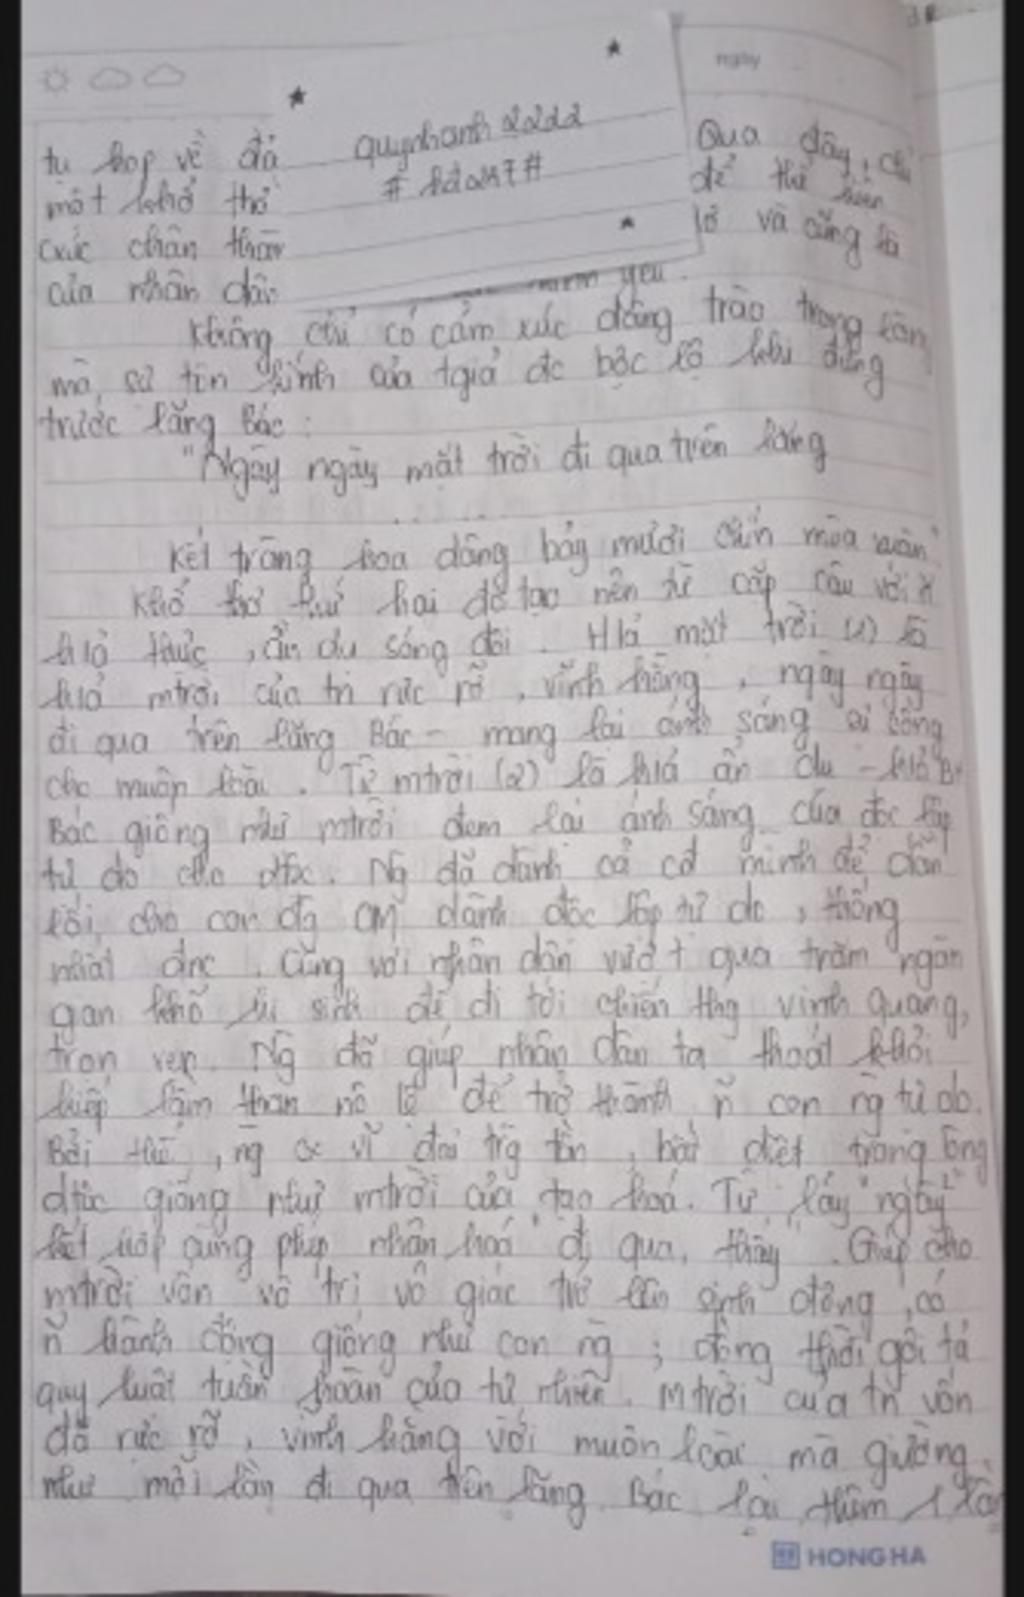 ngày
quynhanh2222
tụ họp về đá Qua đây, chỉ
một khổ thơ để thể hiện
xúc chân thàn và cũng là
của nhân dân yêu.
Không chỉ có cảm xúc dâng trào trong lòng
mà sự tôn kính của tgiả đc bộc lộ khi đứng
trước lăng Bác :
"Ngày ngày mặt trời đi qua trên lăng
.......
Kết tràng hoa dâng bảy mươi chín mùa xuân"
Khổ thơ thứ hai đc tạo nên từ cặp câu với
h/ả thực, ẩn dụ sóng đôi. H/ả mặt trời (1) là
h/ả mtrời của tn rực rỡ, vĩnh hằng, ngày ngày
đi qua trên lăng Bác - mang lại ánh sáng sự sống
cho muôn loài. Từ mtrời (2) là h/ả ẩn dụ - h/ả B
Bác giống như mtrời đem lại ánh sáng của độc lập
tự do cho dtộc. Ng đã dành cả cđ mình để dẫn
lối cho con đg CM dành độc lập tự do, thống
nhất đnc. Cùng với nhân dân vượt qua trăm ngàn
gan khổ hi sinh để đi tới chiến thg vinh quang,
trọn vẹn. Ng đã giúp nhân dân ta thoát khỏi
kiếp lầm than nô lệ để trở thành n̄ con ng tự do.
Bởi thế, ng vĩ đại trg tồn, bất diệt trong lòng
dtộc giống như mtrời của tạo hoá. Từ láy "ngày"
kết hợp cùng phép nhân hoá "đi qua, thấy". Giúp cho
mtrời vốn vô tri vô giác trở lên sinh động, có
n̄ hành động giống như con ng ; đồng thời gợi tả
quy luật tuần hoàn của tự nhiên. Mtrời của tn vốn
đã rực rỡ, vĩnh hằng với muôn loài mà giường
như mỗi lần đi qua trên lăng Bác lại thêm 1 lần
HONG HA